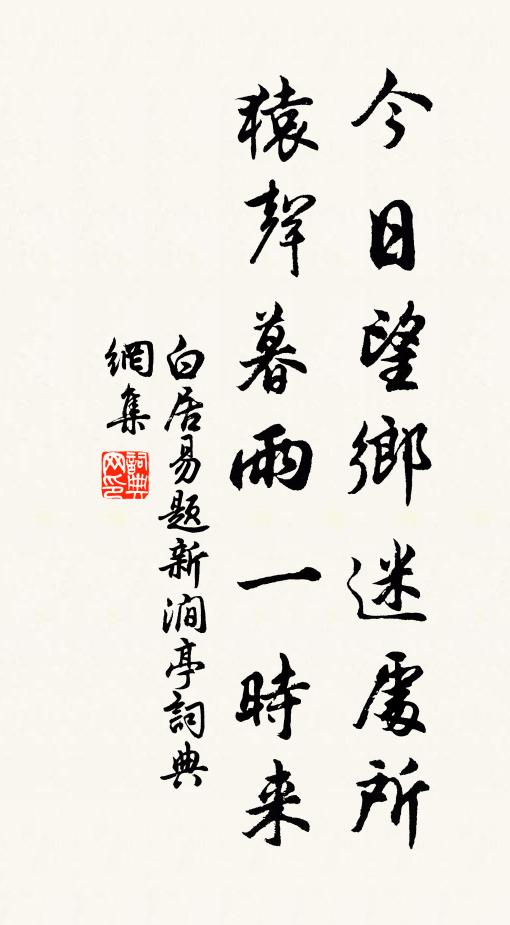 今日望鄉迷處所
猿聲暮雨一時来
白居易題新澗亭詞典
網集
詞典
网印